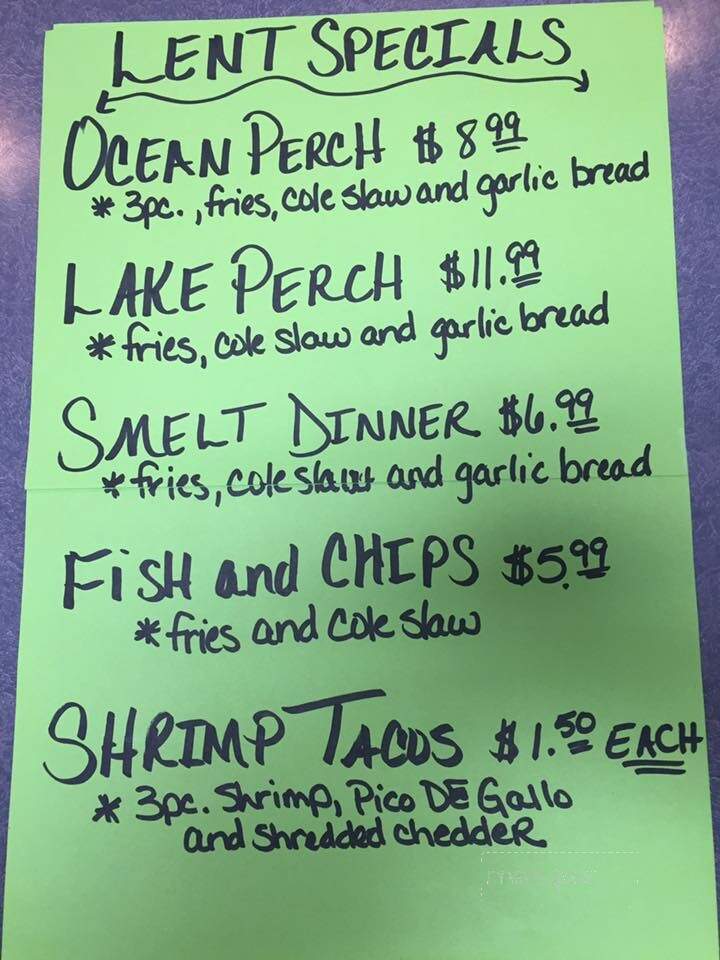 LENT SPECIALS
OCEAN PERCH $8.99
* 3pc., fries, cole slaw and garlic bread
LAKE PERCH $11.99
* fries, cole slaw and garlic bread
SMELT DINNER $6.99
* fries, cole slaw and garlic bread
FiSH and CHIPS $5.99
* fries and cole slaw
SHRIMP TACOS $1.50 EACH
* 3pc. Shrimp, Pico DE Gallo
and shredded chedder